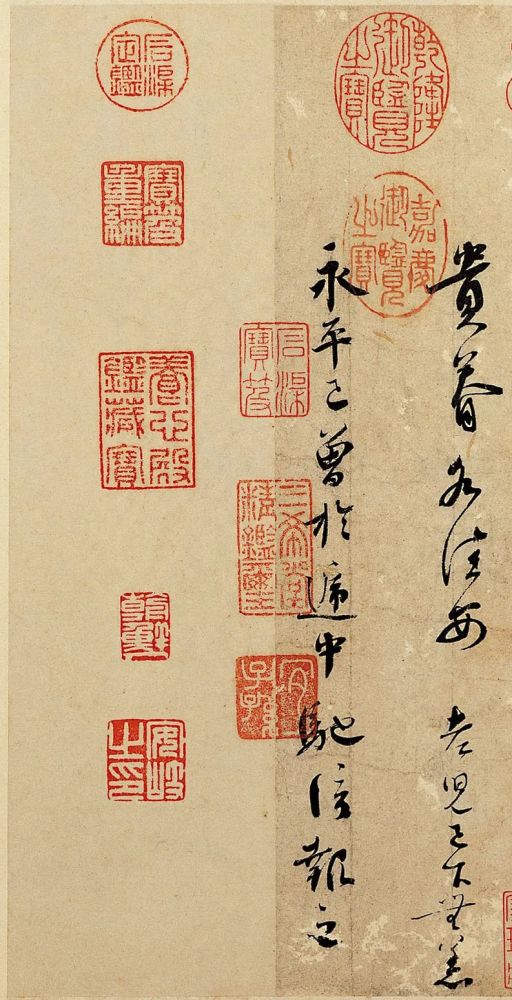 貴眷各佳安 老兒已下無恙
永平已曾於遞中馳信報之
乾隆御覽之寶
嘉慶御覽之寶
石渠寶笈
三希堂精鑑璽
宜子孫
石渠定鑑
寶笈重編
養心殿鑑藏寶
朝鮮
安岐之印